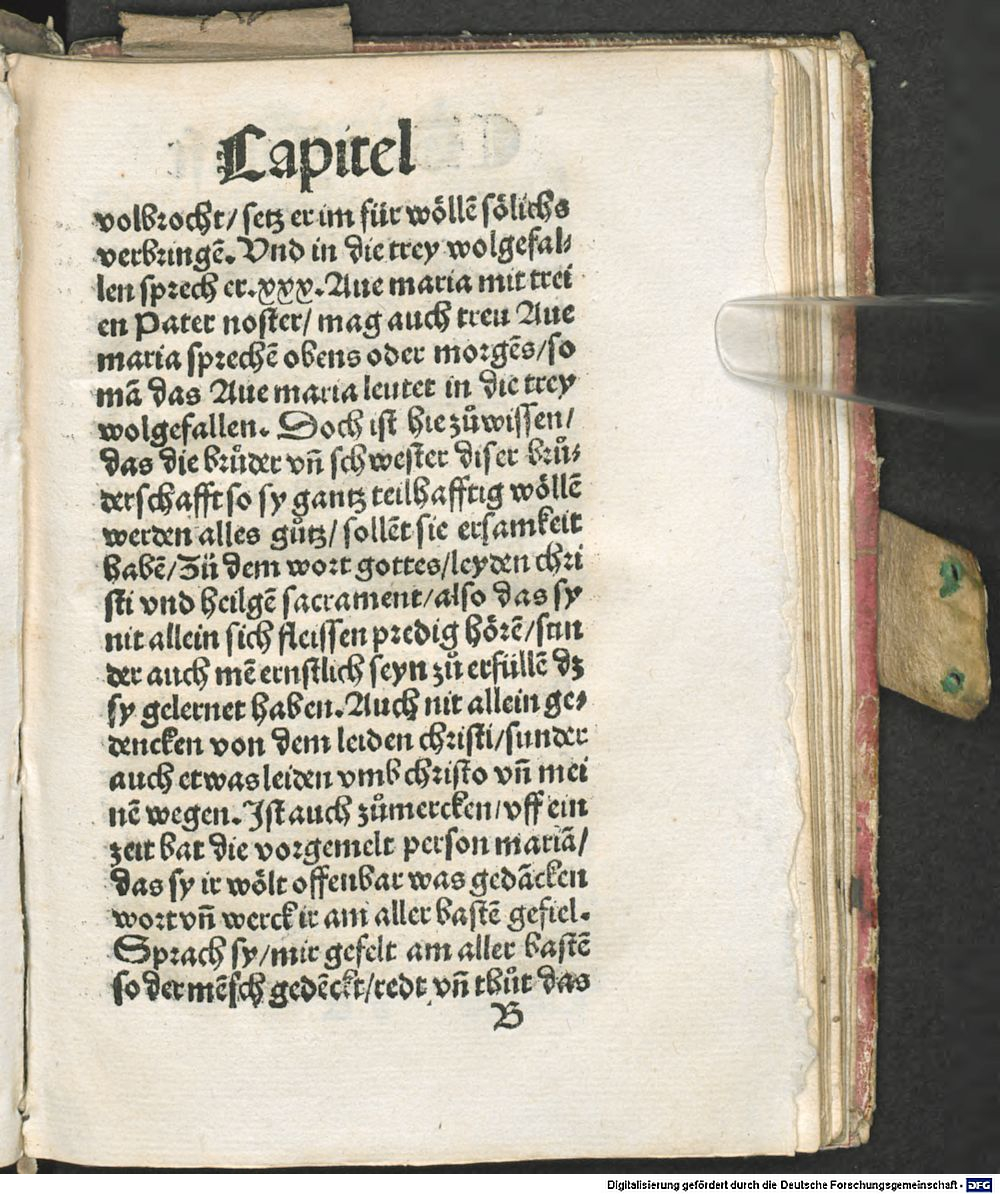 Capitel
volbrocht/ setz er im für wöllē sölichs
verbringē. Vnd in die trey wolgefal⸗
len sprech er.xxx. Aue maria mit trei
en Pater noster/ mag auch treu Aue
maria sprechē obens oder morgēs/so
mā das Aue maria leutet in die trey
wolgefallen. Doch ist hie zůwissen/
das die brůder vn̄ schwester diser brů⸗
derschafft so sy gantz teilhafftig wöllē
werden alles gůtz/ sollēt sie ersamkeit
habē/Zů dem wort gottes/leyden chri
sti vnd heilgē sacrament/also das sy
nit allein sich fleissen predig hörē/sun
der auch mē ernstlich seyn zů erfüllē dz
sy gelernet haben. Auch nit allein ge⸗
dencken von dem leiden christi/sunder
auch etwas leiden vmb christo vn̄ mei
nē wegen. Ist auch zůmercken/vff ein
zeit bat die vorgemelt person mariā/
das sy ir wölt offenbar was gedācken
wort vn̄ werck ir am aller bastē gefiel.
Sprach sy/mir gefelt am aller bastē
so der mēsch gedēckt/redt vn̄ thůt das
B
Digitalisierung gefördert durch die Deutsche Forschungsgemeinschaft - DFG